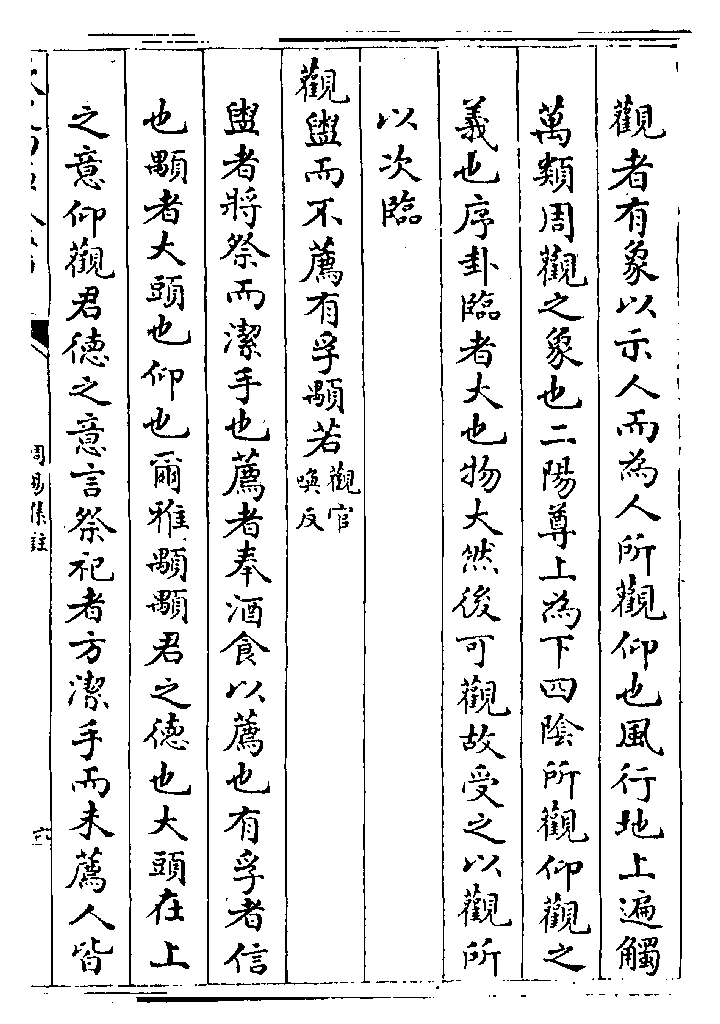 觀者有象以示人而為人所觀仰也風行地上遍觸
萬類周觀之象也二陽尊上為下四陰所觀仰觀之
義也序卦臨者大也物大然後可觀故受之以觀所
以次臨
觀盥而不薦有孚顒若觀官
喚反
盥者將祭而潔手也薦者奉酒食以薦也有孚者信
也顒者大頭也仰也爾雅顒顒君之德也大頭在上
之意仰觀君德之意言祭祀者方潔手而未薦人皆
周易集註